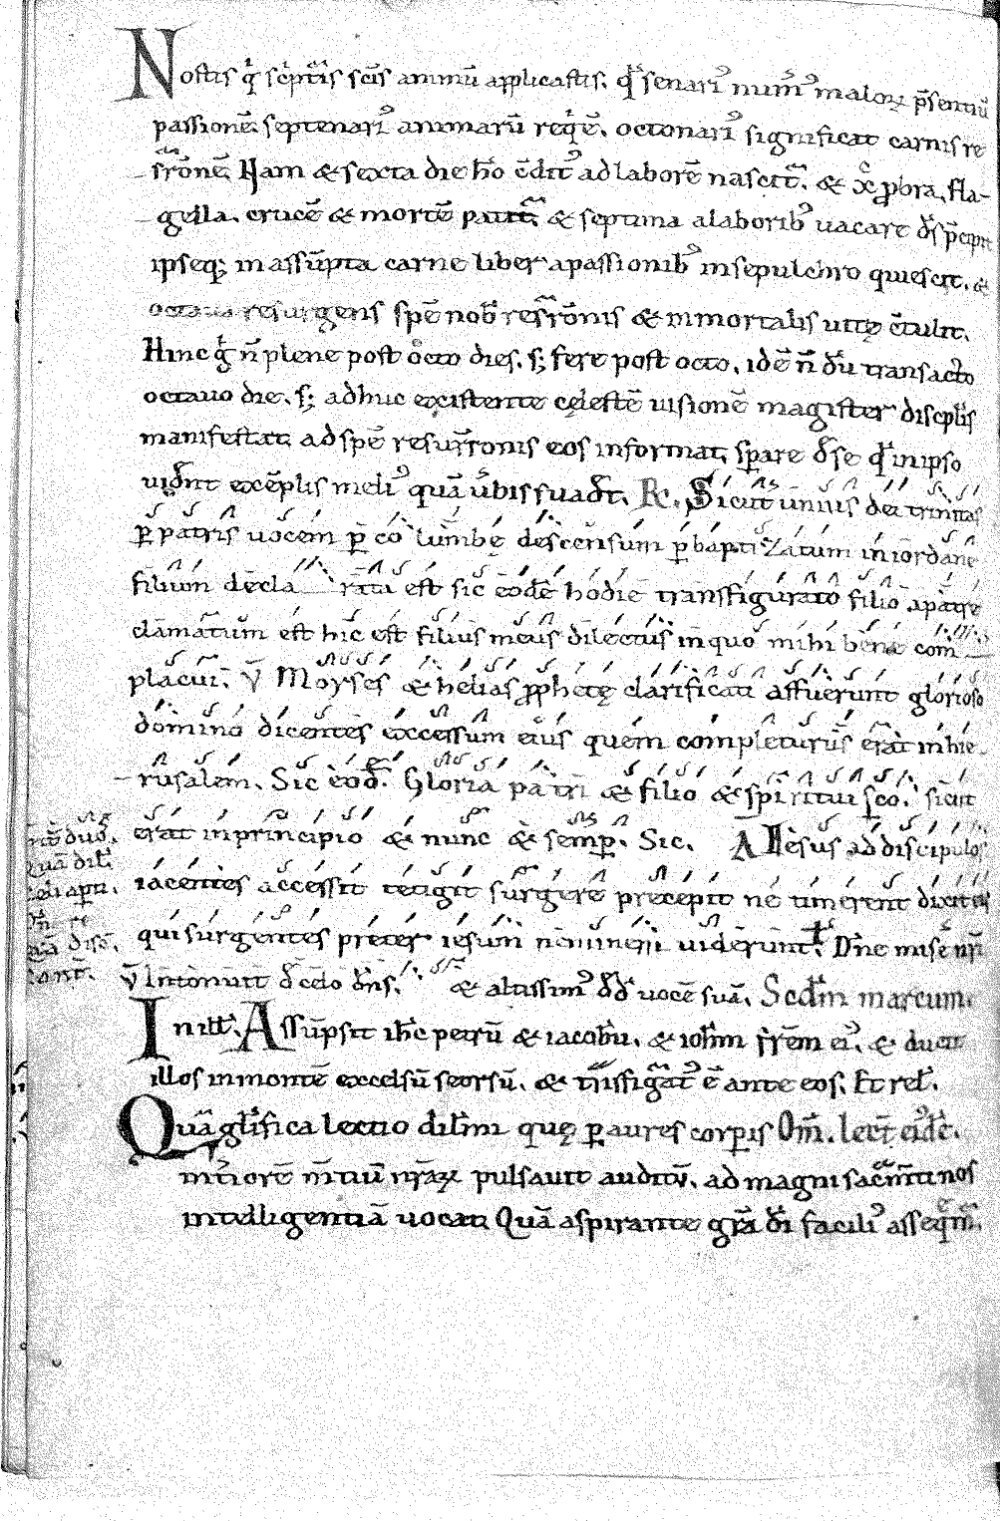 Nostis q̇ sc̄ptu̇ris sc̄is animū applicastis. qd̄ senari⁹ num̄⁹ maloꝝ p̄sentiū
passionē. septenari⁹ animarū reqẽ. octonari⁹ significat carnis re
sr̄onē. Nam & sexta die hō c̄dit⁹ ad laborē nascit᷑. & xp̄c ꝓbra. fla-
gella. crucē & mortē patit᷑. & septima a laborib⁹ uacare dš p̄cipit
ipseq; in assūpta carne liber a passionib⁹ in sepulchro quiescit. &
octaua resurgens spē nob̄ resr̄onis & inmortalis uitę c̄tulit.
Hinc g̊ n̄ plene post octo dies. s; fere post octo. idē n̄ dū transacto
octauo die. s; adhuc existente cęlestē uisionē magister discplis
manifestat. ad spē resurr̄onis eos informat. sꝑare de se qd̄ in ipso
uid̄nt exēplis meli⁹ quā ūbis suad̄t. R. Sicut unius dei trinitas
ꝑ patris uocem ꝑ columbę descensum ꝑ baptizatum in iordane
filium declarata est sic eodē hodie transfigurato filio a patre
clamatum est hic est filius meus dilectus in quo mihi bene com
placui. V̄ Moyses & helias ꝓphetę clarificati affuerunt glorioso
domino dicentes excessum eius quem completurus erat in hie
rusalem. Sic eod̄. Gloria patri & filio & spiritui sc̄o. sicut
erat in principio & nunc & semꝑ. Sic. A Iesus ad discipulos
iacentes accessit tetigit surgere precepit ne timerent dixit eis
qui surgentes preter iesum neminem uiderunt. Dn̄e
V̄ Intonuit d̄ celo dn̄s. & altissim⁹ ded̄ uocē suā. Scdm̄ marcum.
In ill̄. Assūpsit ihc̄ petrū & iacobū. & ioh̄m fr̄em ei⁹. & ducit
illos in montē excelsū seorsū. & tr̄nsfigāt⁹ ē ante eos. Et rel̄.
Quā gl̄ifica lectio dil̄mi quę ꝑ aures corꝑis Om̄. lect̄ eid̄c.
int̄iorē m̄tiū nr̄aꝝ pulsauit auditū. ad magni sacm̄ti nos
intelligentiā uocat. Quā aspirante gr̄a d̄i facili⁹ asseq̄m̄.